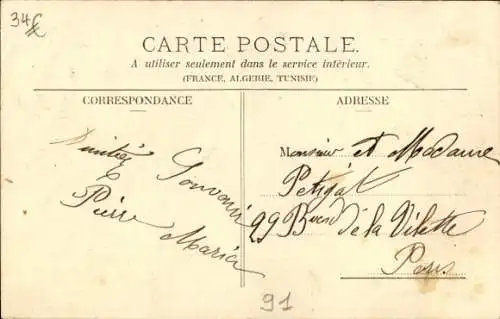 34€
CARTE POSTALE.
A utiliser seulement dans le service intérieur.
(FRANCE, ALGERIE, TUNISIE)
CORRESPONDANCE
Amitiés Souvenir
Pierre Maria
ADRESSE
Monsieur et Madame
99 B de la Vilette
Paris
91